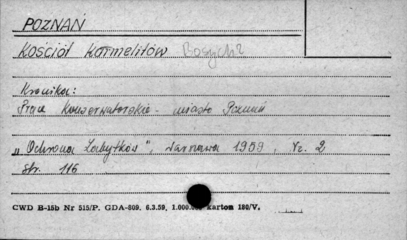 POZNAŃ
Kościół Karmelitów Bosych?
Kronika:
Prace Konserwatorskie - miasto Poznań
"Ochrona Zabytków", Warszawa 1959, Nr. 2
str. 116
CWD B-15b Nr 515/P. GDA-809. 6.3.59. 1.000.000 karton 180/V.